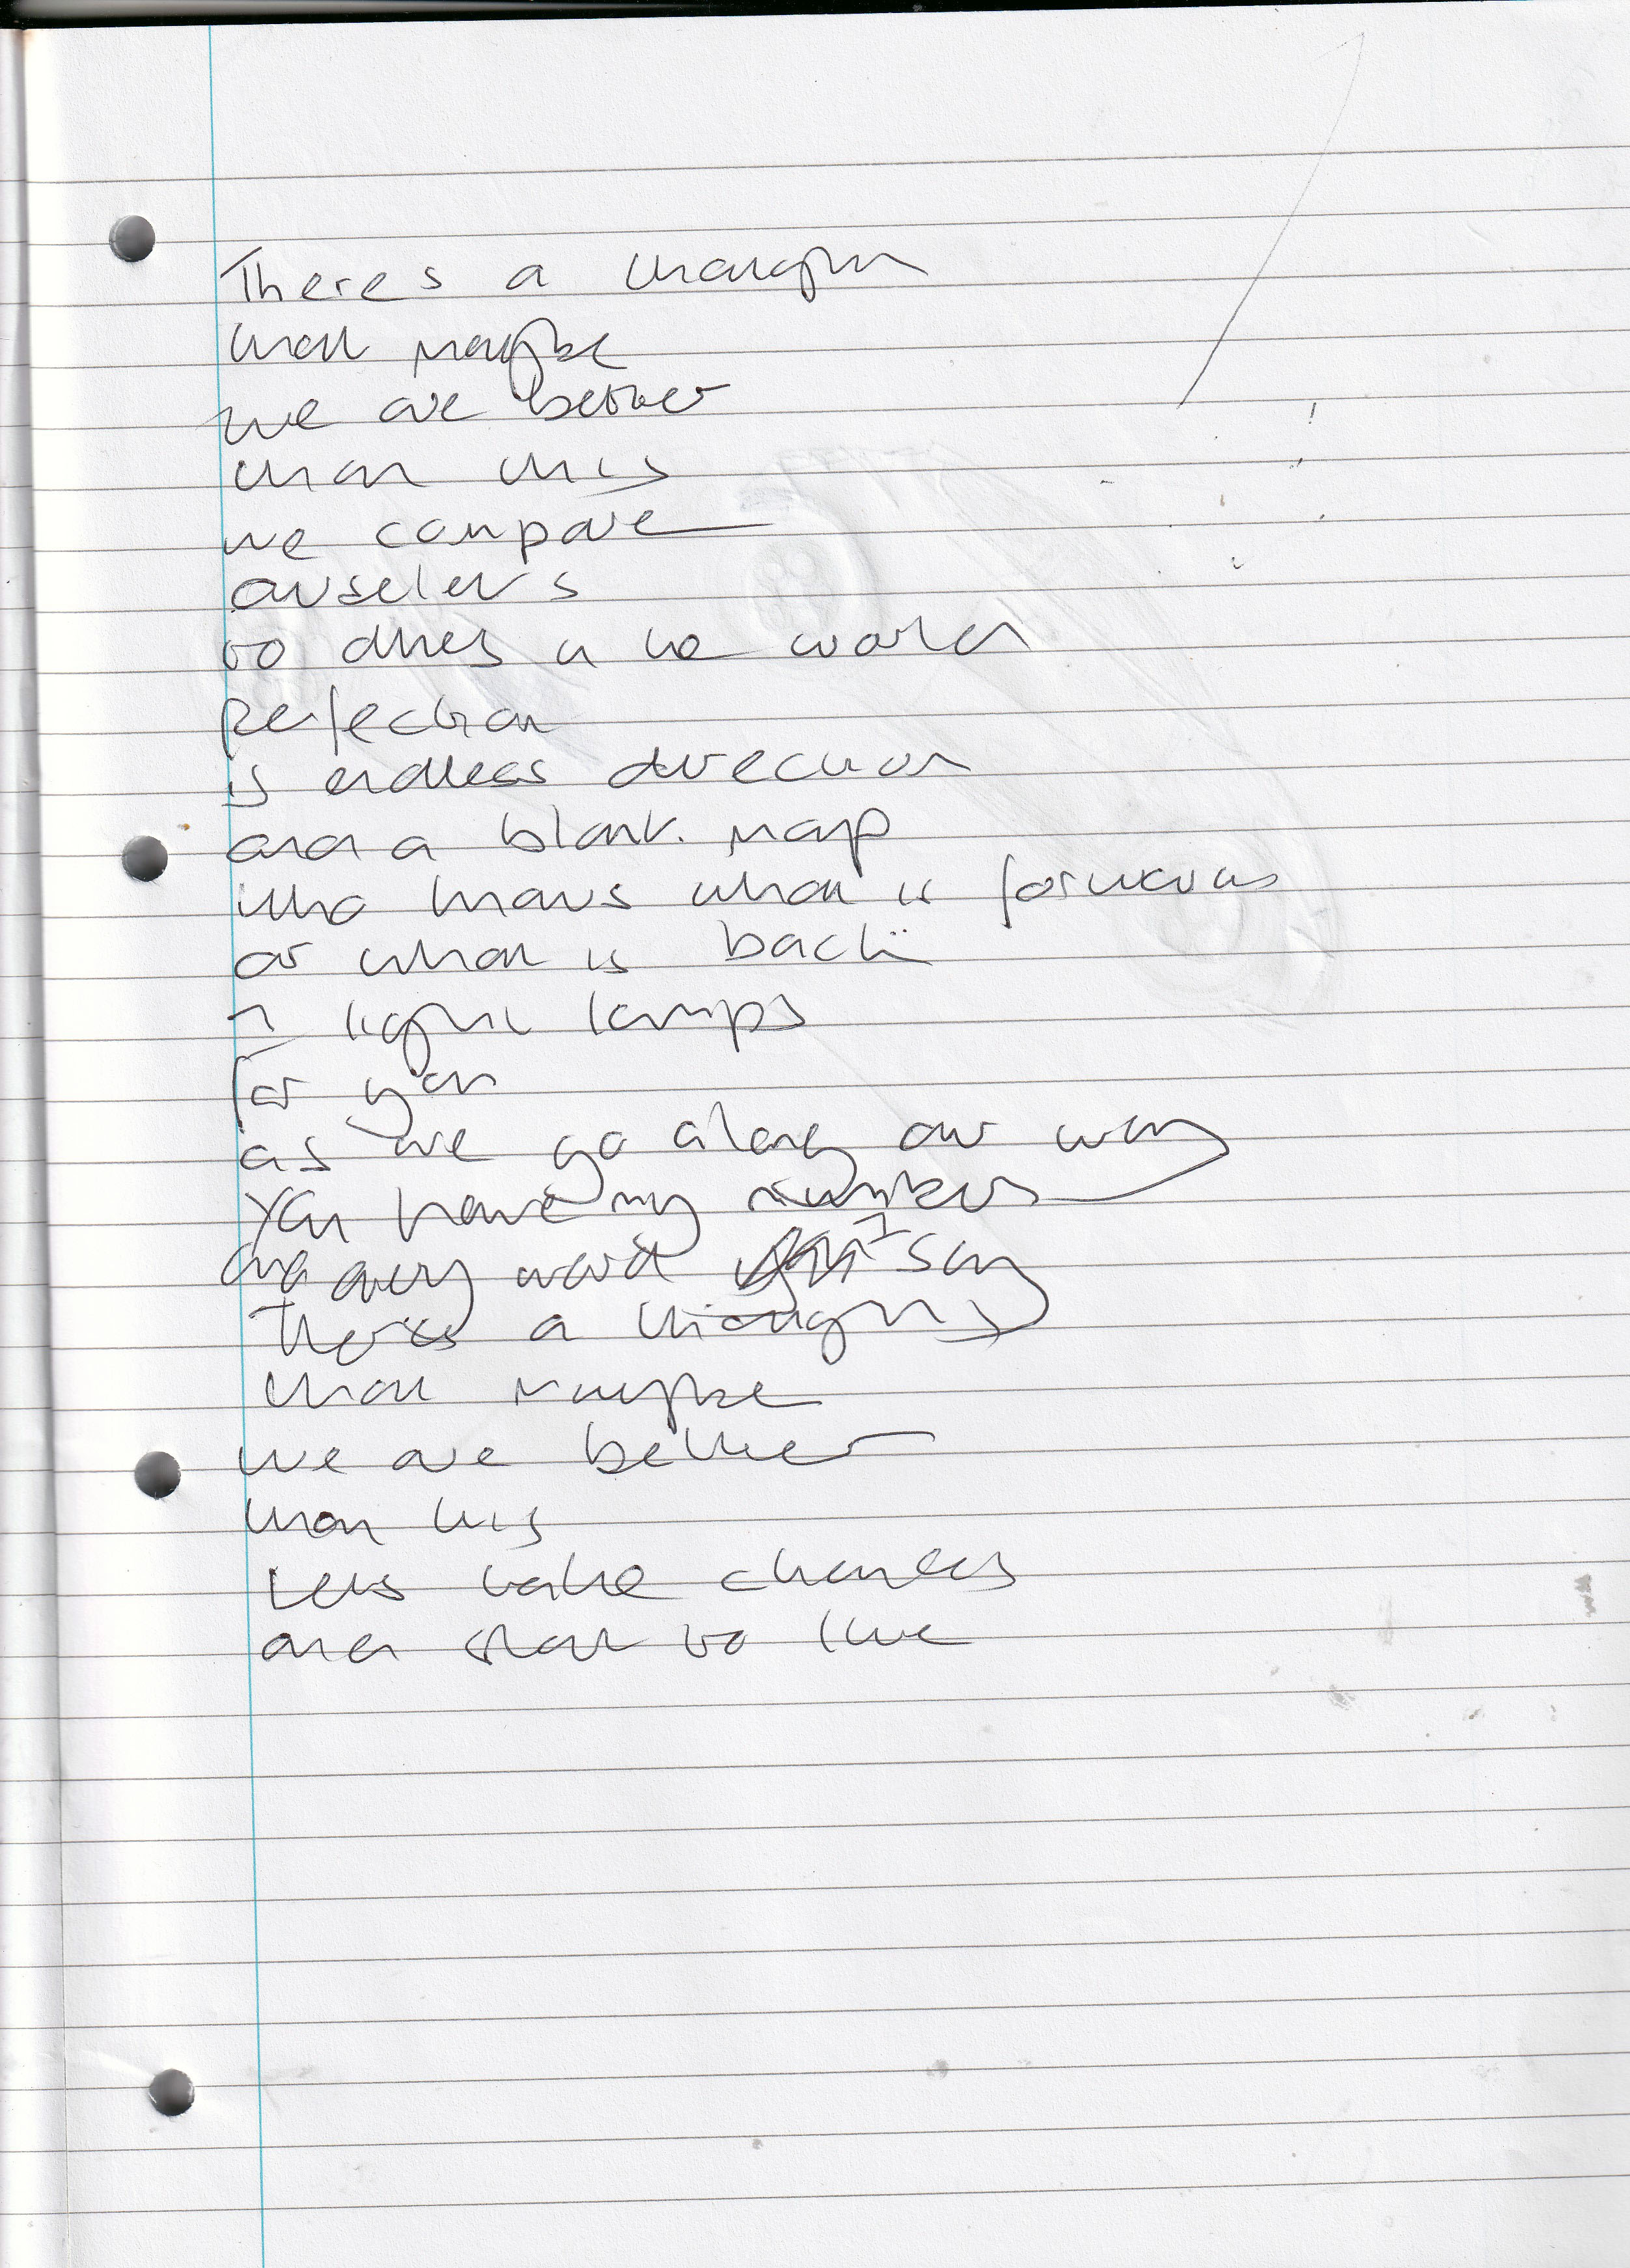 There's a thought
that maybe
we are better
than this
we compare
ourselves
to others in the world
perfection
is endless direction
and a blank map
who knows what is forwards
or what is back
I light lamps
for you
as we go along our way
You have my numbers
and every word I say
There's a thought
that maybe
we are better
than this
Lets take chances
and start to live